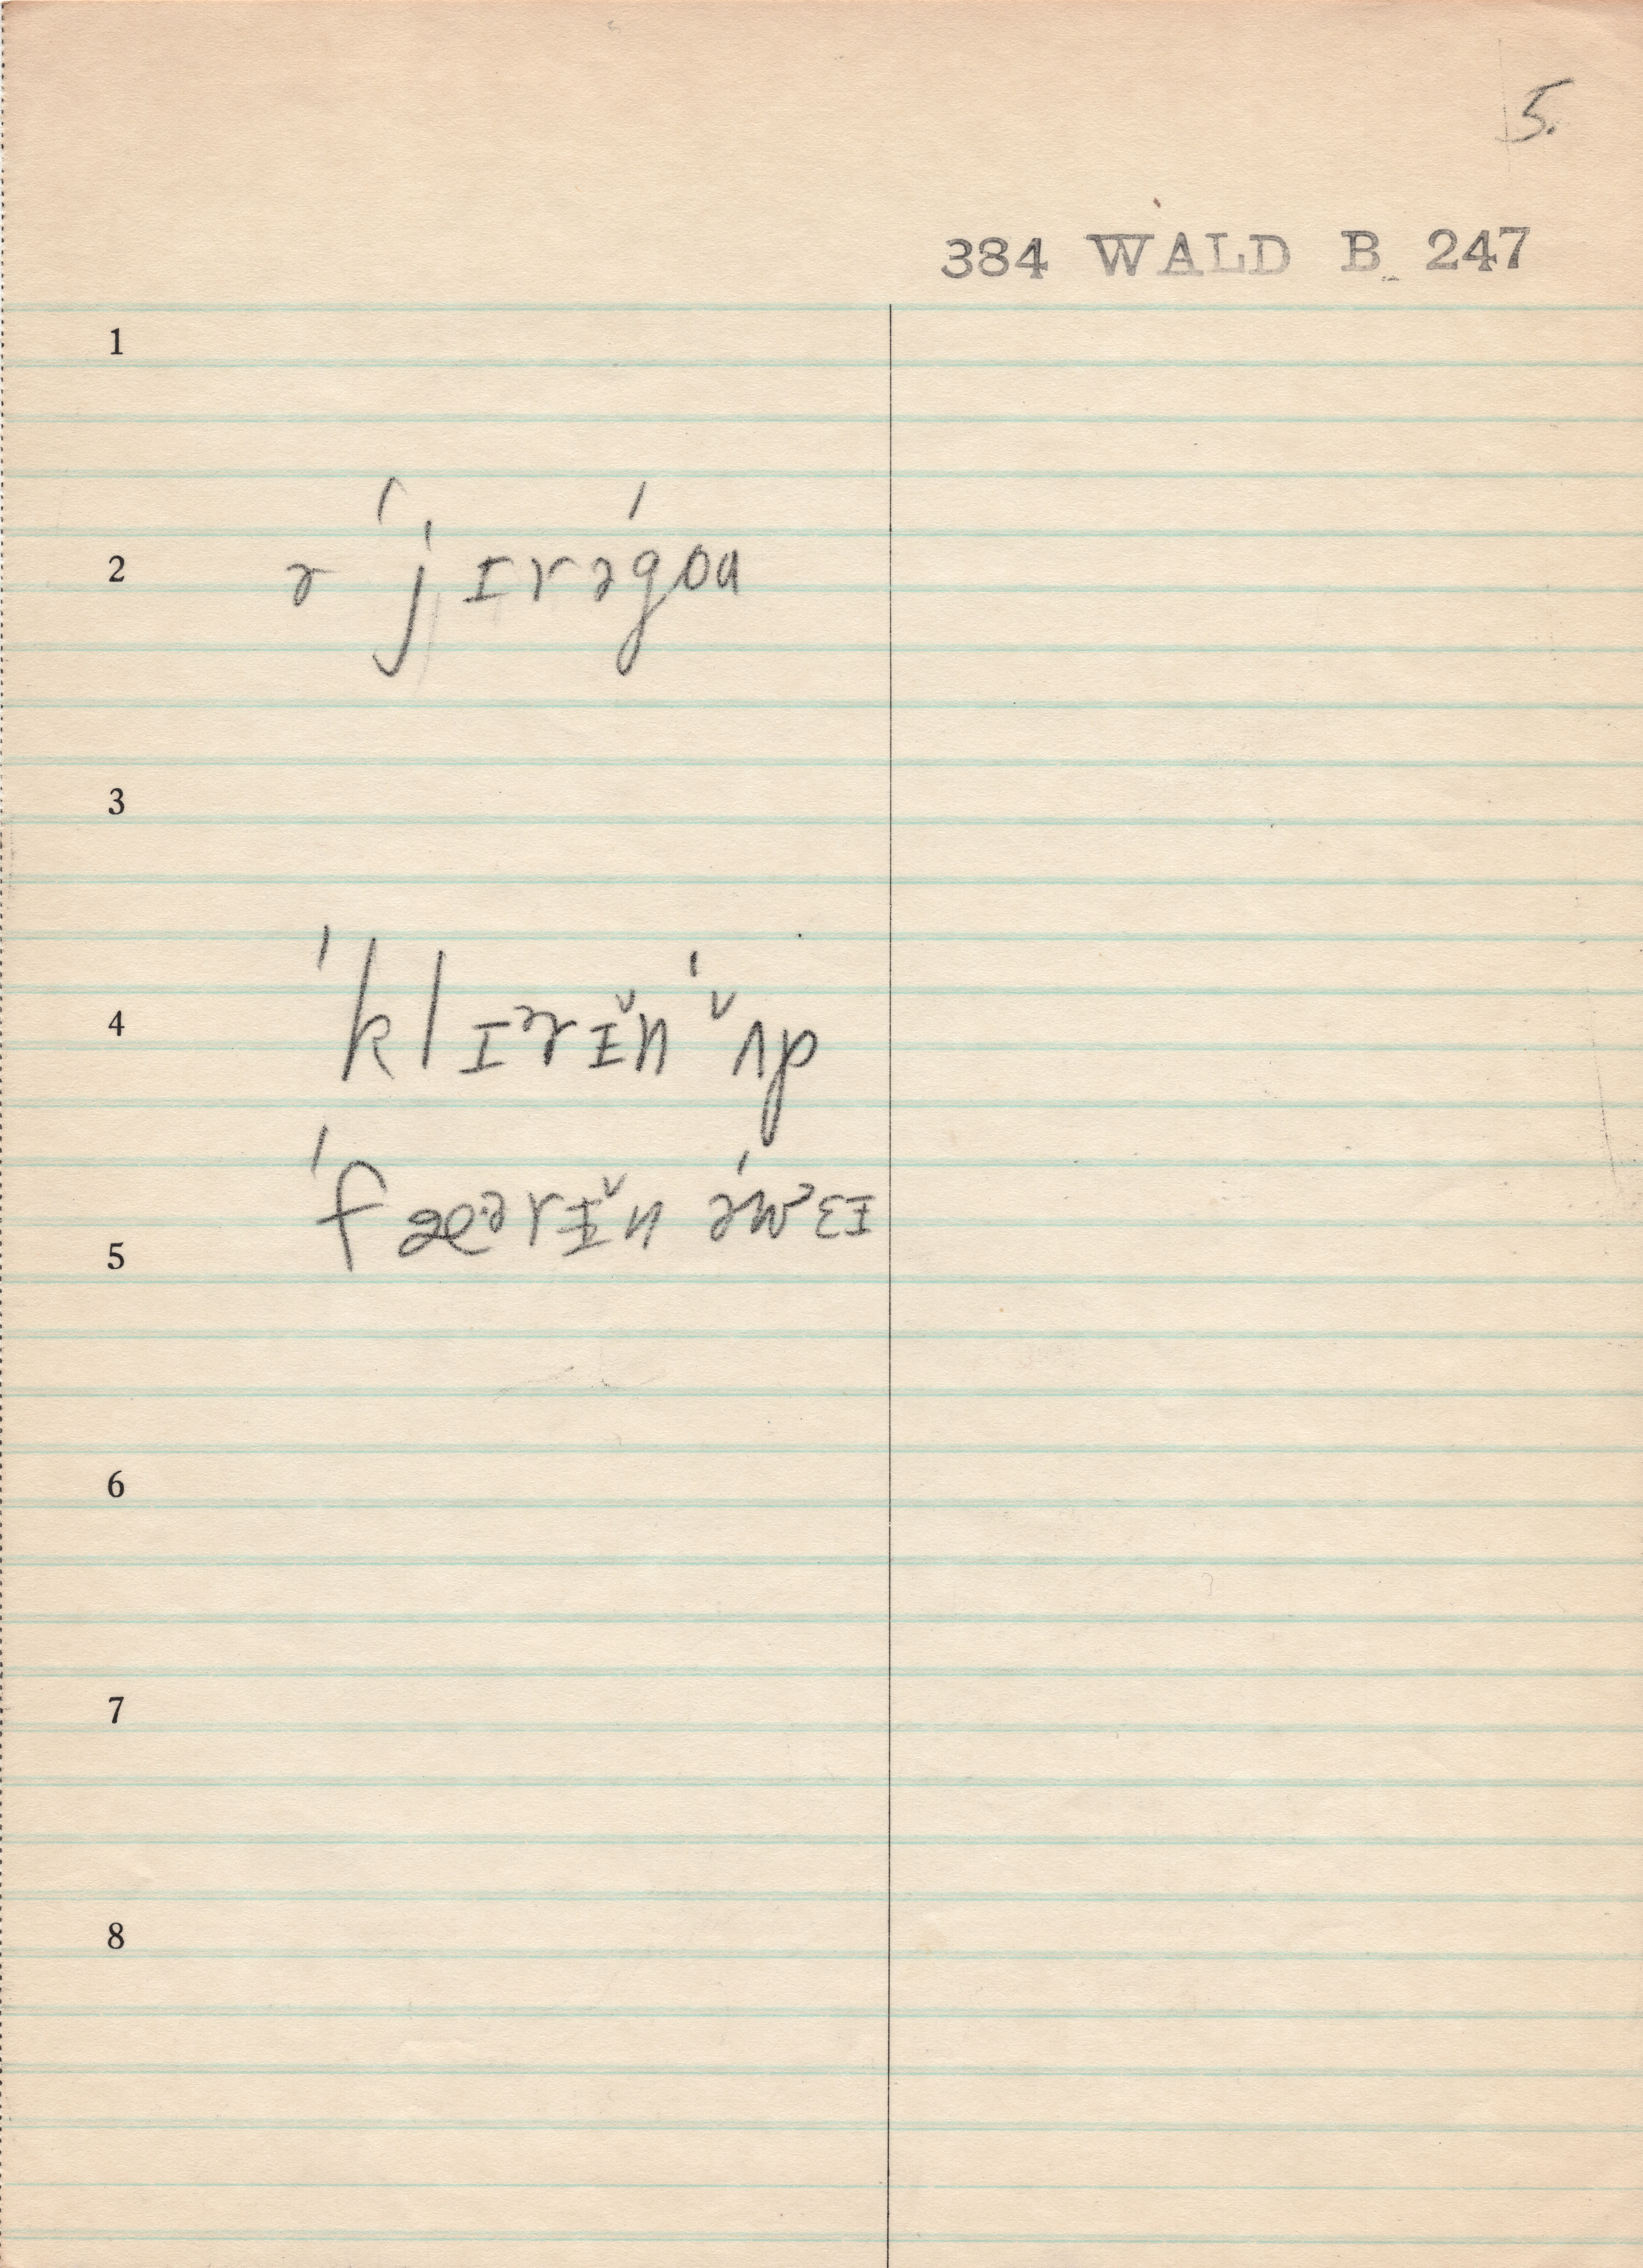 5.
384 WALD B 247
1
2 ə ˈjɪrəˈgoʊ
3
4 ˈklɪᵊrɪ̆n ˈʌ̆p
ˈfæᵊrɪ̆n əˈwɛɪ
5
6
7
8